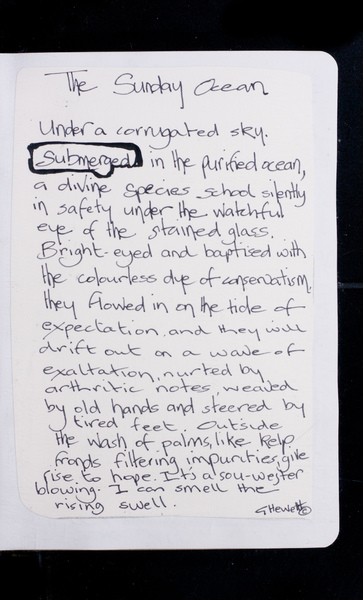 The Sunday Ocean
Under a corrugated sky.
Submerged in the purified ocean,
a divine species school silently
in safety under the watchful
eye of the stained glass.
Bright-eyed and baptised with
the colourless dye of conservatism.
they flowed in on the tide of
expectation, and they will
drift out on a wave of
exaltation, nurted by
arthritic notes, weaved
by old hands and steered by
tired feet. Outside
the wash of palms, like kelp
fronds filtering impurities, give
rise to hope. It's a sou-wester
blowing. I can smell the
rising swell.
GHewett©